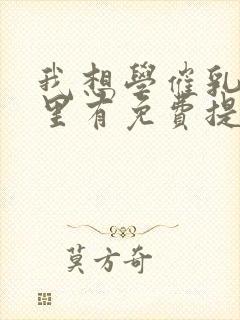 我想學催乳
里有免費提
莫方奇